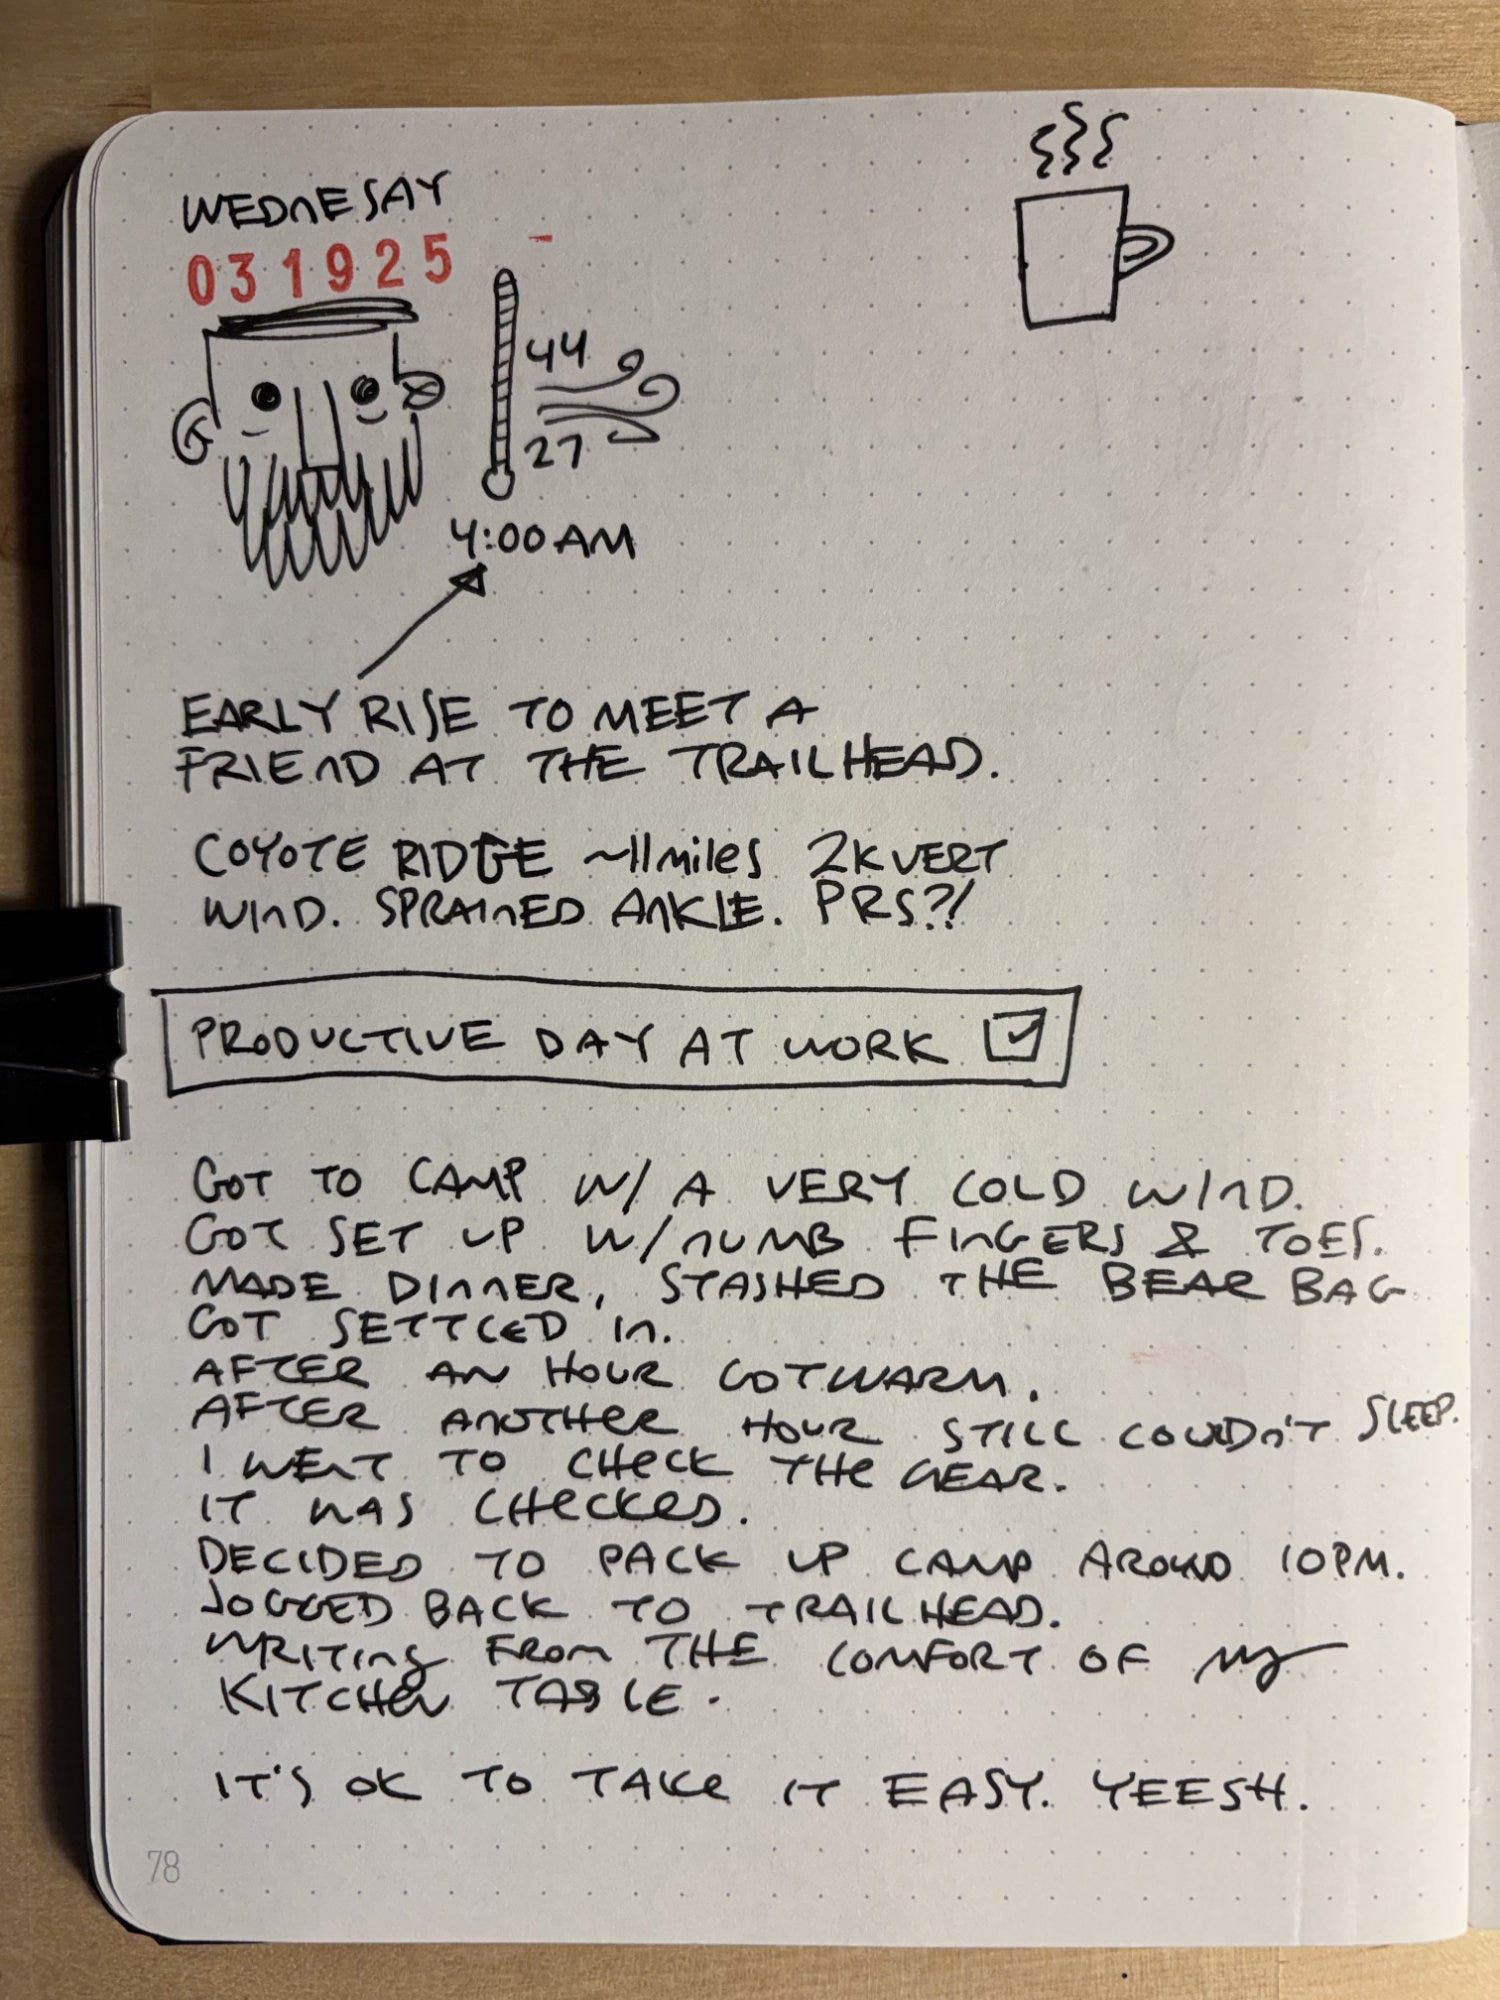 WEDNESAY
031925 -
44
27
4:00 AM
EARLY RISE TO MEET A
FRIEND AT THE TRAILHEAD.
COYOTE RIDGE ~11 miles 2K VERT
WIND. SPRAINED ANKLE. PRS?!
PRODUCTIVE DAY AT WORK
GOT TO CAMP W/ A VERY COLD WIND.
GOT SET UP W/ NUMB FINGERS & TOES.
MADE DINNER, STASHED THE BEAR BAG
GOT SETTLED IN.
AFTER AN HOUR GOT WARM.
AFTER ANOTHER HOUR STILL COULDN'T SLEEP.
I WENT TO CHECK THE GEAR.
IT WAS CHECKED.
DECIDED TO PACK UP CAMP AROUND 10PM.
JOGGED BACK TO TRAILHEAD.
WRITING FROM THE COMFORT OF MY
KITCHEN TABLE.
IT'S OK TO TAKE IT EASY. YEESH.
78